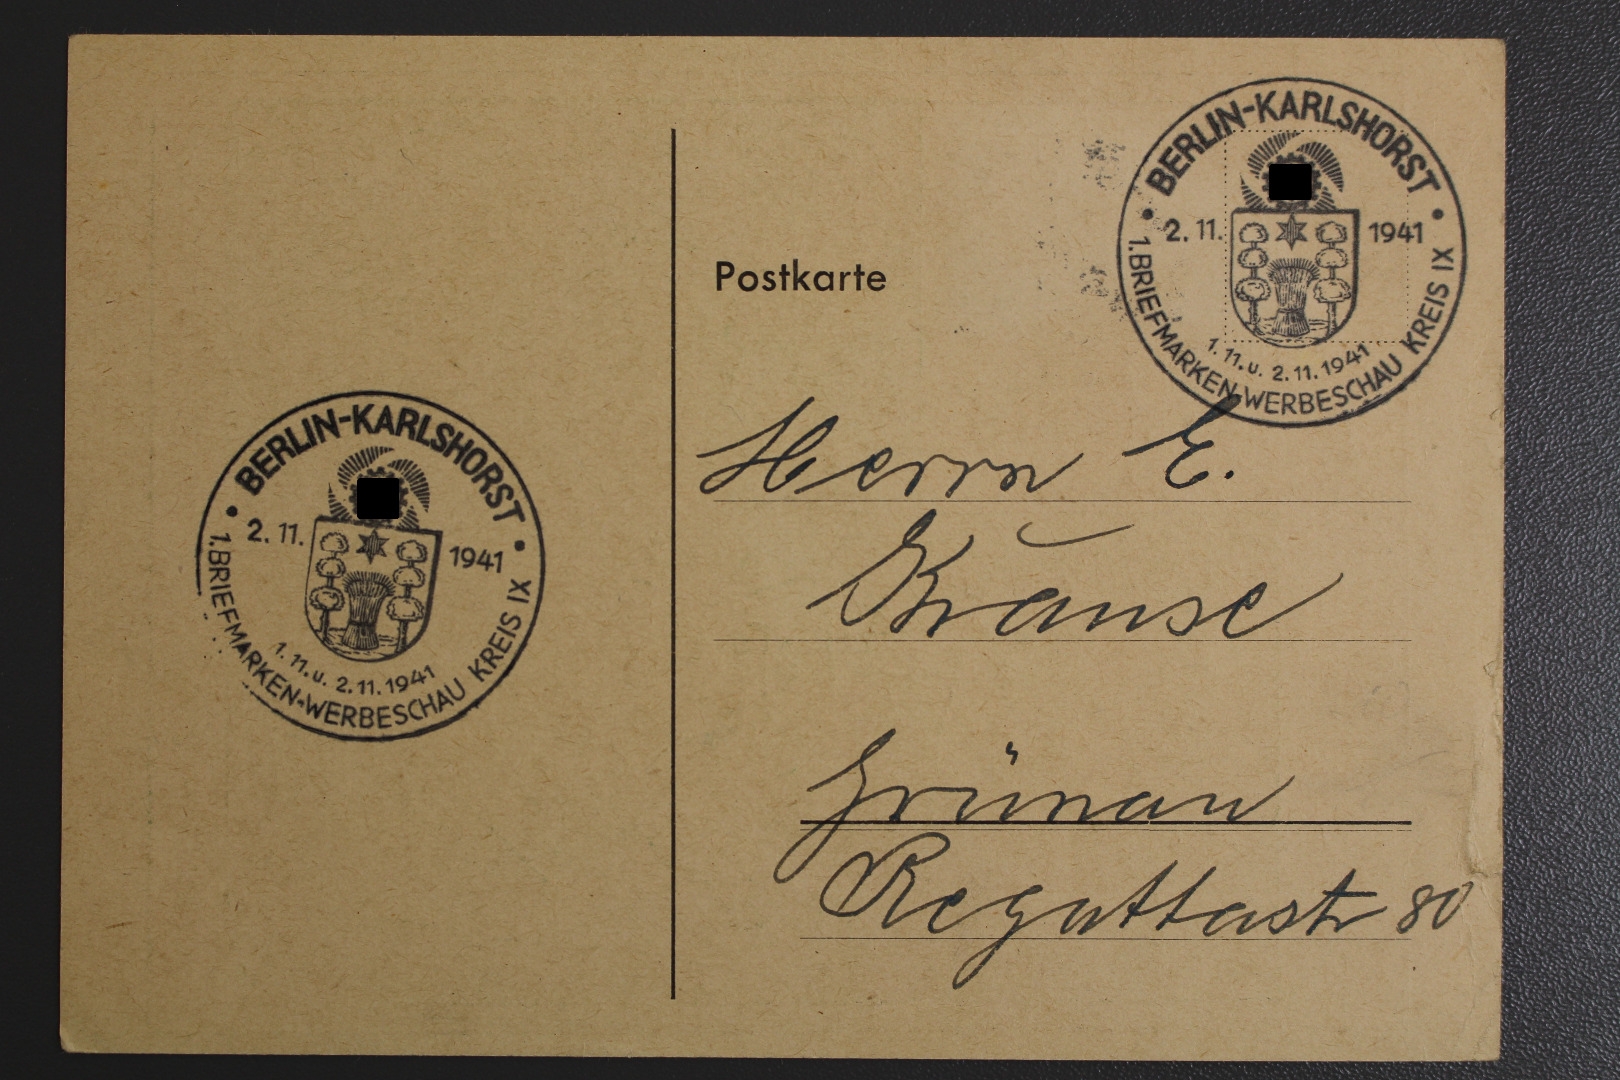 BERLIN-KARLSHORST
2. 11. 1941
1. 11. u. 2. 11. 1941
1. BRIEFMARKEN-WERBESCHAU KREIS IX
Postkarte
Herrn E.
Krause
Grünau
Regattastr 80
BERLIN-KARLSHORST
2. 11. 1941
1. 11. u. 2. 11. 1941
1. BRIEFMARKEN-WERBESCHAU KREIS IX